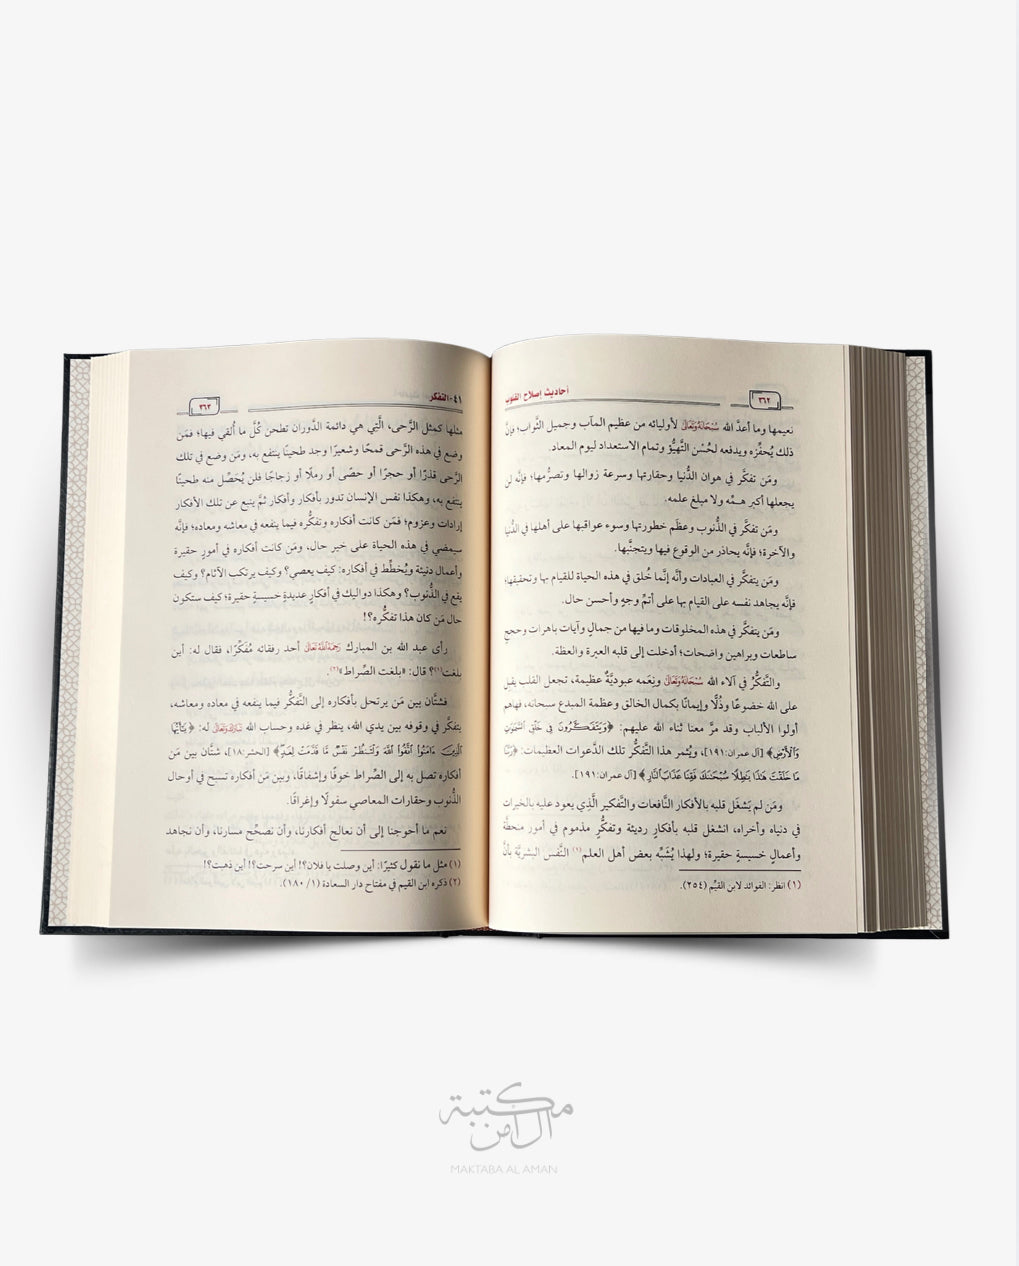 ٣٦٢
أحاديث إصلاح القلوب
نعيمها وما أعدَّ الله سُبْحَانَهُ وَتَعَالَى لأوليائه من عظيم المآب وجميل الثَّواب؛ فإنَّ
ذلك يُحفِّزه ويدفعه لحُسْن التَّهيُّؤ وتمام الاستعداد ليوم المعاد.
ومَن تفكَّر في هوان الدُّنيا وحقارتها وسرعة زوالها وتصرُّمها؛ فإنَّه لن
يجعلها أكبر همِّه ولا مبلغ علمه.
ومَن تفكَّر في الذُّنوب وعظَم خطورتها وسوء عواقبها على أهلها في الدُّنيا
والآخرة؛ فإنَّه يحاذر من الوقوع فيها ويتجنَّبها.
ومَن يتفكَّر في العبادات وأنَّه إنَّما خُلق في هذه الحياة للقيام بها وتحقيقها؛
فإنَّه يجاهد نفسه على القيام بها على أتمِّ وجهٍ وأحسن حال.
ومَن يتفكَّر في هذه المخلوقات وما فيها من جمالٍ وآيات باهرات وحججٍ
ساطعات وبراهين واضحات؛ أدخلت إلى قلبه العبرة والعظة.
والتَّفكُّرُ في آلاء الله سُبْحَانَهُ وَتَعَالَى ونِعَمه عبوديَّةٌ عظيمة، تجعل القلب يقبل
على الله خضوعًا وذُلًّا وإيمانًا بكمال الخالق وعظمة المبدع سبحانه، فهاهم
أولوا الألباب وقد مرَّ معنا ثناء الله عليهم: ﴿وَيَتَفَكَّرُونَ فِي خَلْقِ السَّمَوَتِ
وَالْأَرْضِ﴾ [آل عمران:١٩١]، ويُثمر هذا التَّفكُّر تلك الدَّعوات العظيمات: ﴿رَبَّنَا
مَا خَلَقْتَ هَذَا بَطِلًا سُبْحَنَكَ فَقِنَا عَذَابَ النَّارِ﴾ [آل عمران:١٩١].
ومَن لم يَشغَل قلبه بالأفكار النَّافعات والتَّفكير الَّذي يعود عليه بالخيرات
في دنياه وأخراه، انشغل قلبه بأفكارٍ رديئة وتفكُّرٍ مذموم في أمور منحطَّة
وأعمالٍ خسيسةٍ حقيرة؛ ولهذا يُشَبِّه بعض أهل العلم(١) النَّفس البشريَّة بأنَّ
(١) انظر: الفوائد لابن القيِّم (٢٥٤).
٤١-التفكر
٣٦٣
مثلها كمثل الرَّحى، الَّتي هي دائمة الدَّوران تطحن كُلَّ ما أُلقي فيها؛ فمَن
وضع في هذه الرَّحى قمحًا وشعيرًا وجد طحينًا ينتفع به، ومَن وضع في تلك
الرَّحى قذرًا أو حجرًا أو حصًى أو رملًا أو زجاجًا فلن يُحَصِّل منه طحينًا
ينتفع به، وهكذا نفس الإنسان تدور بأفكار وأفكار ثمَّ ينبع عن تلك الأفكار
إرادات وعزوم؛ فمَن كانت أفكاره وتفكُّره فيما ينفعه في معاشه ومعاده؛ فإنَّه
سيمضي في هذه الحياة على خير حال، ومَن كانت أفكاره في أمورٍ حقيرة
وأعمال دنيئة ويُخطِّط في أفكاره: كيف يعصي؟ وكيف يرتكب الآثام؟ وكيف
يقع في الذُّنوب؟ وهكذا دواليك في أفكارٍ عديدةٍ خسيسةٍ حقيرة؛ كيف ستكون
حال مَن كان هذا تفكُّره؟!
رأى عبد الله بن المبارك رَحِمَهُ اللَّهُ تَعَالَى أحد رفقائه مُفَكِّرًا، فقال له: أين
بلغت(١)؟ قال: «بلغت الصِّراط»(٢).
فشتَّان بين مَن يرتحل بأفكاره إلى التَّفكُّر فيما ينفعه في معاده ومعاشه،
يتفكَّر في وقوفه بين يدي الله، ينظر في غده وحساب الله تَبَارَكَ وَتَعَالَى له: ﴿يَأَيُّهَا
الَّذِينَ ءَامَنُوا اتَّقُوا اللَّهَ وَلْتَنظُرْ نَفْسٌ مَّا قَدَّمَتْ لِغَدٍ﴾ [الحشر:١٨]، شتَّان بين مَن
أفكاره تصل به إلى الصِّراط خوفًا وإشفاقًا، وبين مَن أفكاره تسبح في أوحال
الذُّنوب وحقارات المعاصي سفولًا وإغراقًا.
نعم ما أحوجنا إلى أن نعالج أفكارنا، وأن نصحِّح مسارنا، وأن نجاهد
(١) مثل ما نقول كثيرًا: أين وصلت يا فلان؟! أين سرحت؟! أين ذهبت؟!
(٢) ذكره ابن القيم في مفتاح دار السعادة (١/ ١٨٠).
مكتبة
الأمن
MAKTABA AL AMAN